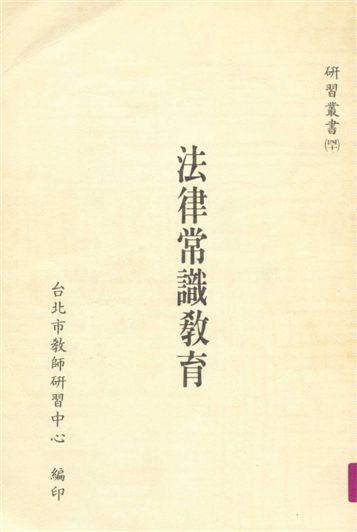 研習叢書㈣十
法律常識教育
台北市教師研習中心 編印